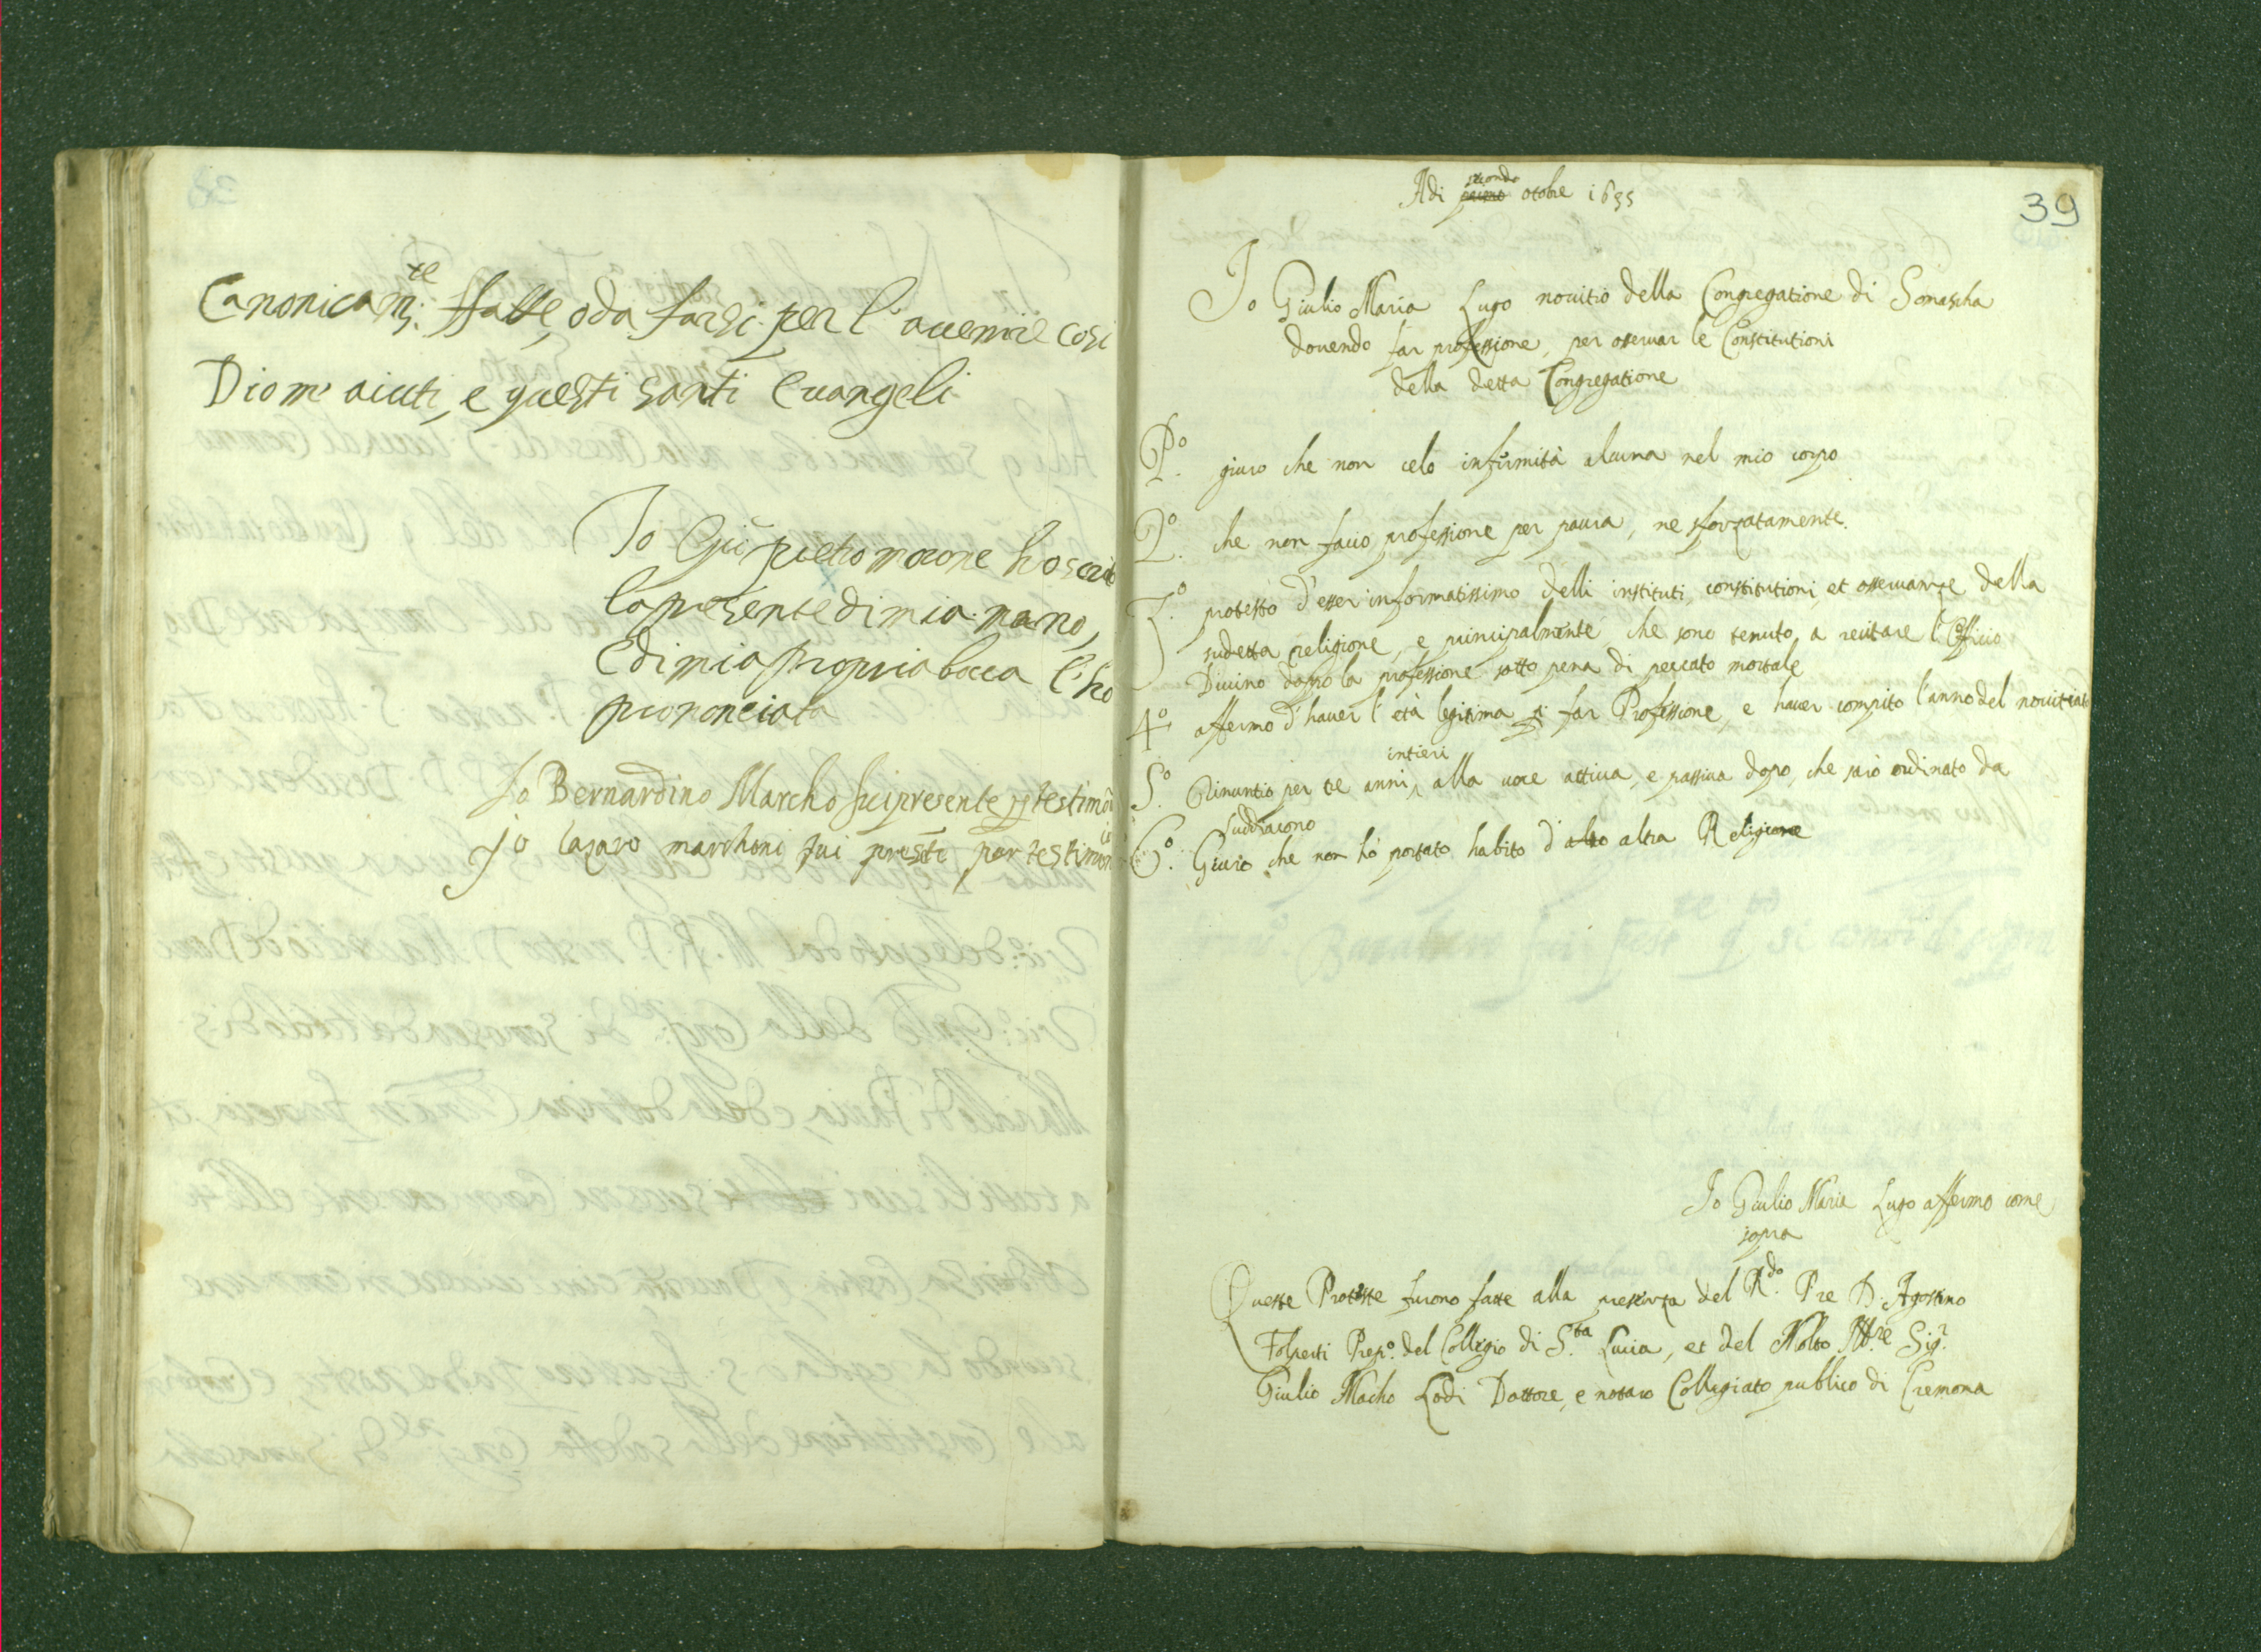 Canonicam.te ffatte, o da farsi per l'avenire così
Dio m'aiuti, e questi santi Evangeli
Io Gio pietro morone ho scrit
la presente di mia mano,
E di mia propria bocca l'ho
prononciata
Io Bernardino Marcho fui presente per testimo
Jo lazaro marchoni fui presēte per testimon
39
Adi primo secondo otobre 1635
Io Giulio Maria Lugo novitio della Congregatione di Somascha
dovendo far professione, per osservar le Constitutioni
della detta Congregatione
P.o giuro che non celo infirmità alcuna nel mio corpo
2.o che non facio professione per paura, ne sforzatamente.
3.o protesto d'esser informatissimo delli instituti, constitutioni, et osservanze della
sudetta religione, e principalmente che sono tenuto a recitare l'Officio
Divino dopo la professione sotto pena di peccato mortale
4.o affermo d'haver l'età legitima di far Professione, e haver compito l'anno del novitiato
5.o Rinuntio per tre anni intieri, alla voce attiva, e passiva dopo, che sarò ordinato da
suddiacono
6.o Giuro che non hò portato habito d'altro altra Religione
Io Giulio Maria Lugo affermo come
sopra
Queste Proteste furono fatte alla presenza del R.do Pre D. Agostino
Folperti Prep.o del Collegio di S.ta Lucia, et del Molto Ill.re Sig.r
Giulio Macho Lodi Dottore, e notaro Collegiato publico di Cremona